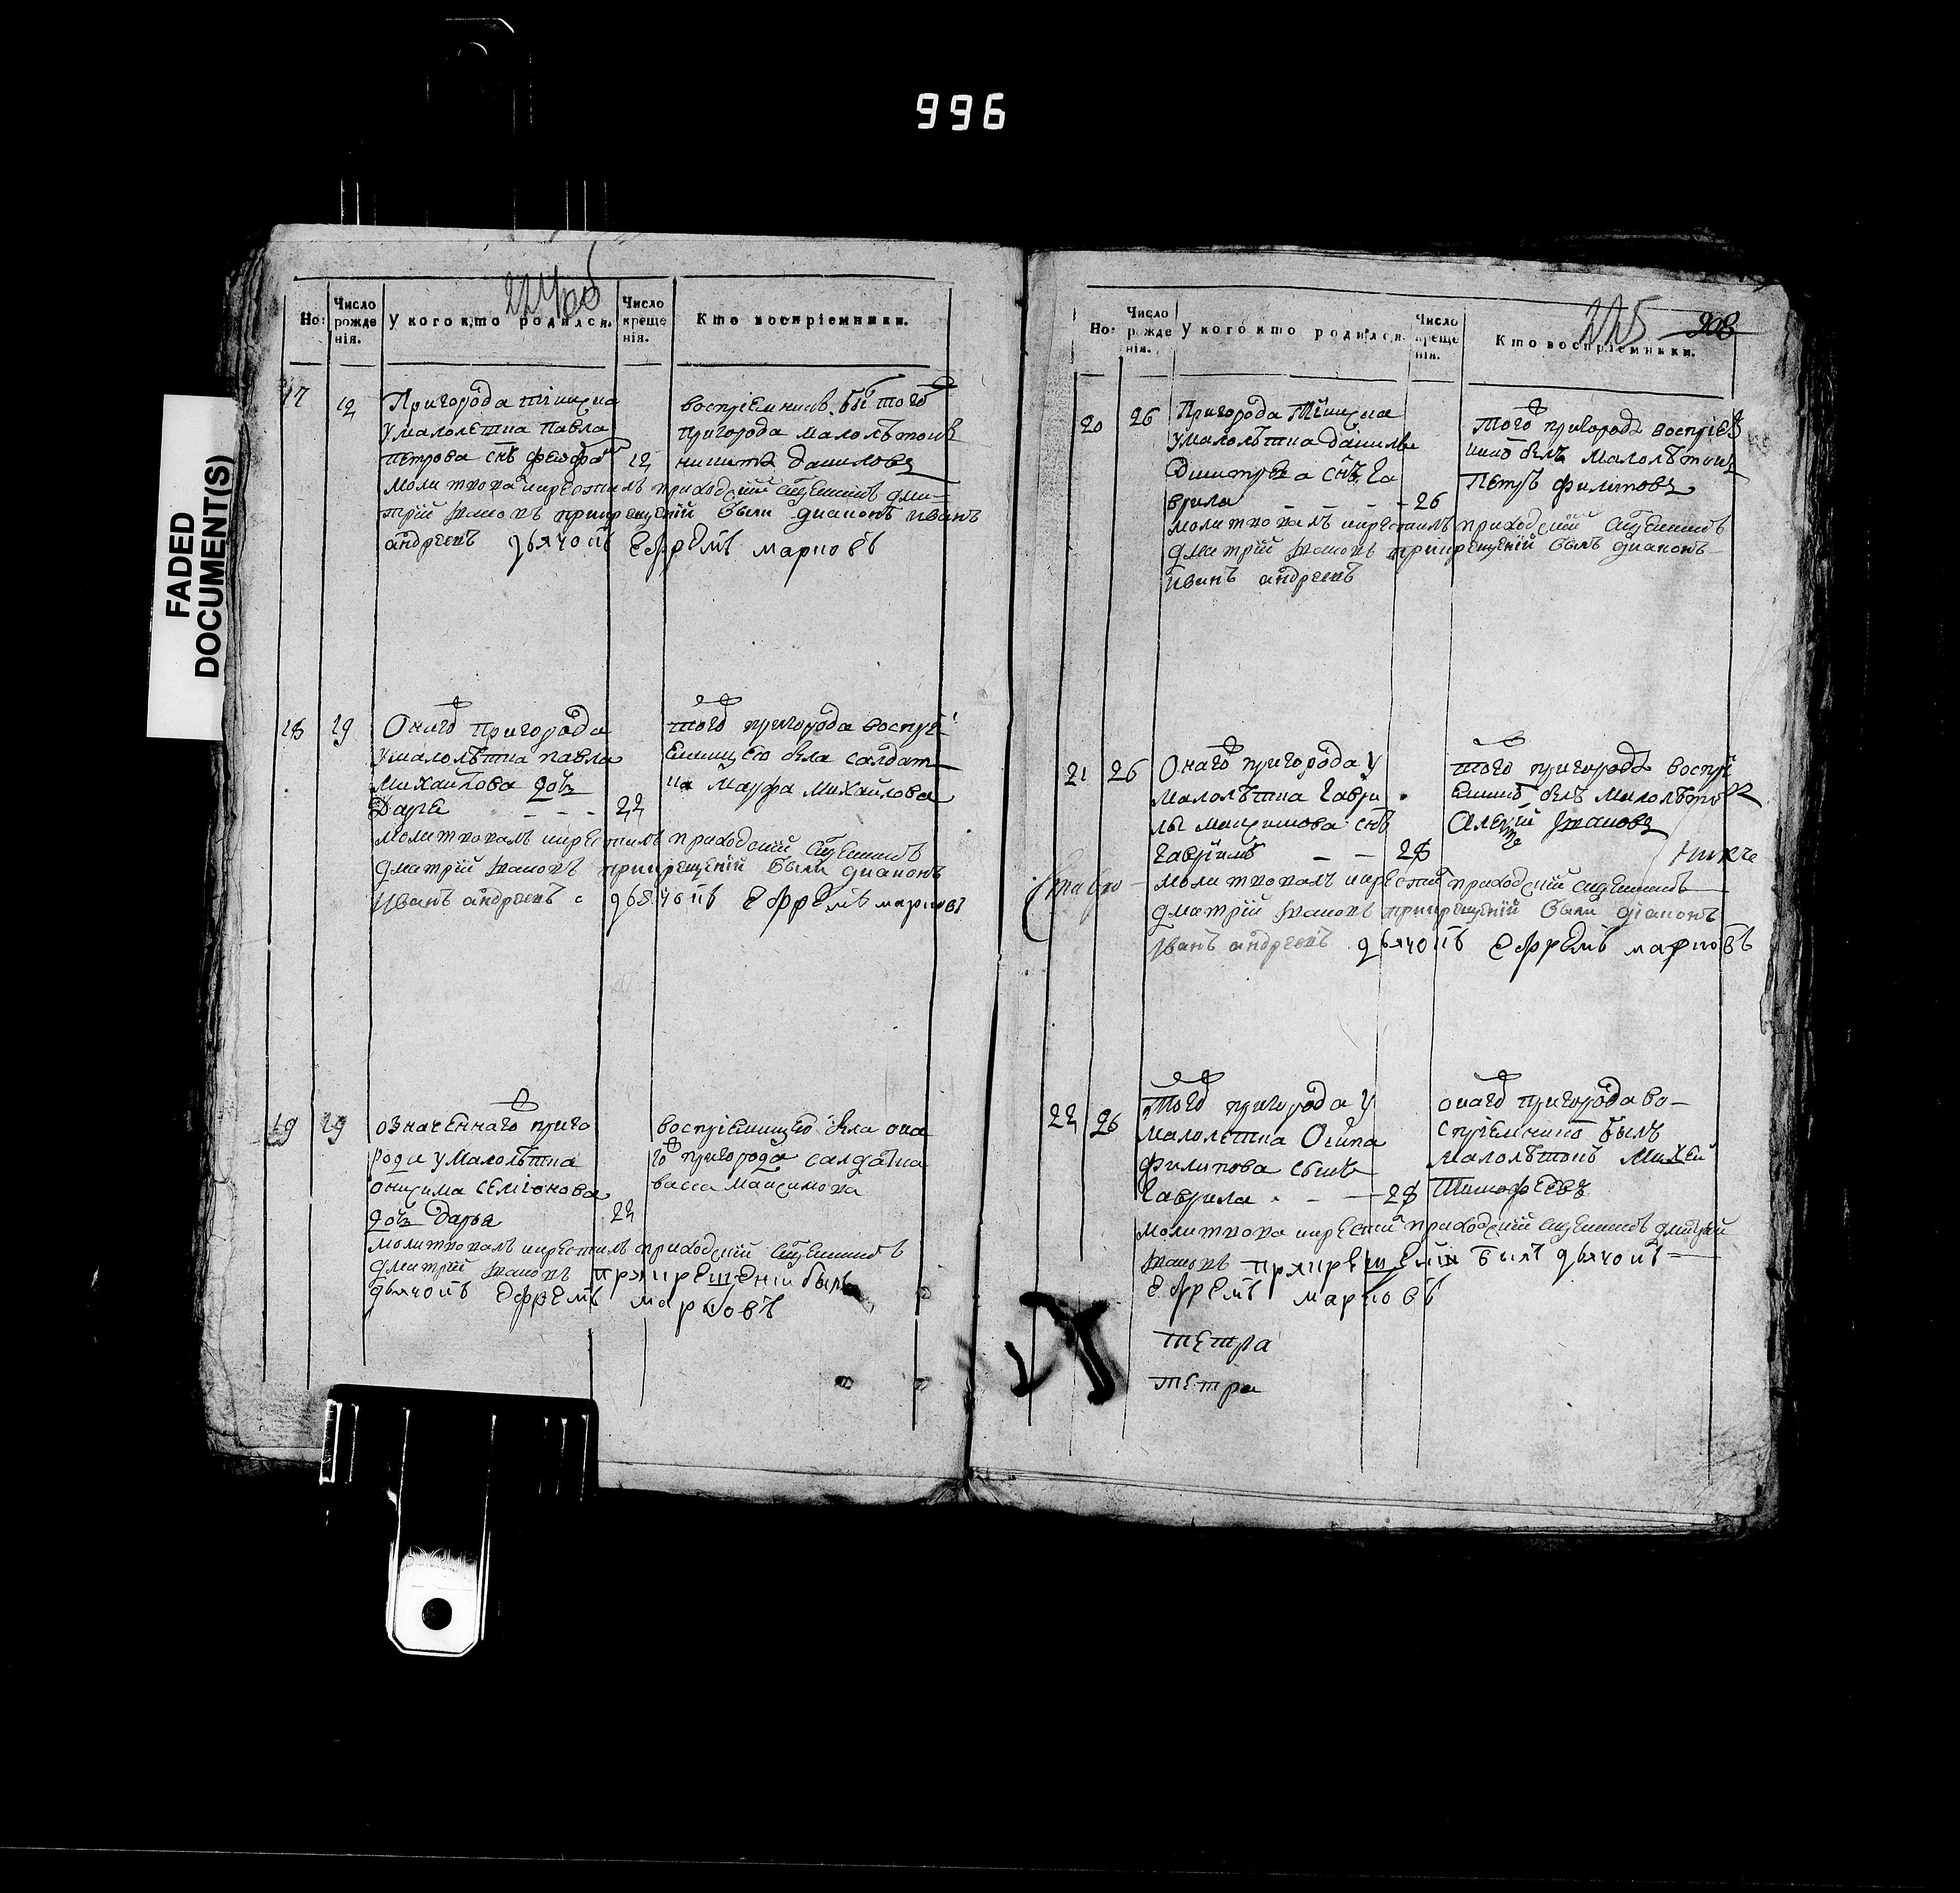 996
FADED
DOCUMENT(S)
224об
Но:
Число рожденія.
У кого кто родился.
Число крещенія.
Кто воспріемники.
17
12
Пригорода тіинска
умалолетка Павла
петрова снъ феодоръ
12
воспріемникъ бы того
пригорода малолѣтокъ
никита даниловъ
молитвовалъ икрестилъ приходскій сщенникъ дми-
трій прикрещеніи были диаконъ иванъ
андреевъ дьячокъ Ефремъ марковъ
18
19
Онаго пригорода
умалолѣтка павла
михаилова дочь
Дарья - - - 22
того пригорода воспрі-
емницею была салдат-
ка Марфа Михаилова
молитвовалъ икрестилъ приходскій сщенникъ
дмитрій прикрещеніи были диаконъ
Иванъ андреевъ дьячокъ Ефремъ марковъ
19
19
означеннаго приго
рода умалолѣтка
онисима семіонова
дочь дарья
22
воспріемницею была она
го пригорода салдатка
васса максимова
молитвовалъ икрестилъ приходскій сщенникъ
дмитрій прикрещеніи былъ
дьячокъ Ефремъ марковъ
225
208
Но:
Число рожденія.
У кого кто родился.
Число крещенія.
Кто воспріемники.
20
26
Пригорода Тіинска
умалолѣтка данилы
Дмитрева снъ Га
врила - - - - 26
того пригорода воспріем
никъ былъ малолѣтокъ
Петръ филиповъ
молитвовалъ икрестилъ приходскій сщенникъ
дмитрій прикрещеніи былъ диаконъ
Иванъ андреевъ
21
26
Онаго пригорода у
малолѣтка Гаври
лы максимова снъ
Гавріилъ - - 28
того пригорода воспрі
емникъ былъ малолѣтокъ
Алексѣй
молитвовалъ икрестилъ приходскій сщенникъ
дмитрій прикрещеніи были діаконъ
Иванъ андреевъ дьячокъ Ефремъ марковъ
22
26
Того пригорода у
малолетка Осипа
филипова сынъ
Гаврила - - 28
онаго пригорода во-
спріемникъ былъ
малолѣтокъ Михей
Тимофеевъ
молитвова икрести приходскій сщенникъ дмитрій
прикрещеніи былъ дьячокъ
Ефремъ марковъ
тетра
тетра